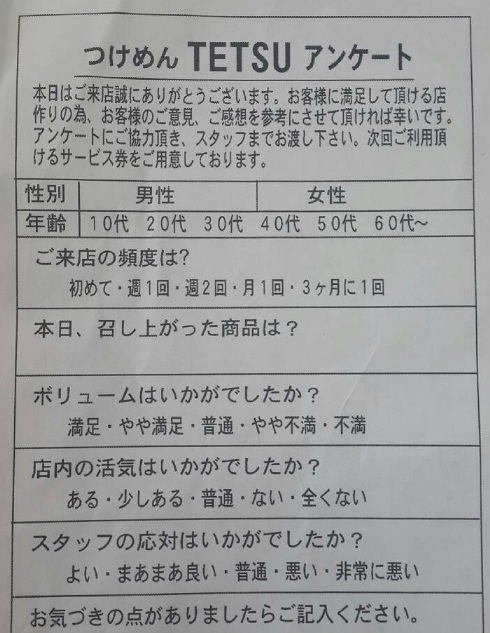 つけめん TETSU アンケート
本日はご来店誠にありがとうございます。お客様に満足して頂ける店
作りの為、お客様のご意見、ご感想を参考にさせて頂ければ幸いです。
アンケートにご協力頂き、スタッフまでお渡し下さい。次回ご利用頂
けるサービス券をご用意しております。
性別 男性 女性
年齢 10代 20代 30代 40代 50代 60代~
ご来店の頻度は?
初めて・週1回・週2回・月1回・3ヶ月に1回
本日、召し上がった商品は？
ボリュームはいかがでしたか？
満足・やや満足・普通・やや不満・不満
店内の活気はいかがでしたか？
ある・少しある・普通・ない・全くない
スタッフの応対はいかがでしたか？
よい・まあまあ良い・普通・悪い・非常に悪い
お気づきの点がありましたらご記入ください。